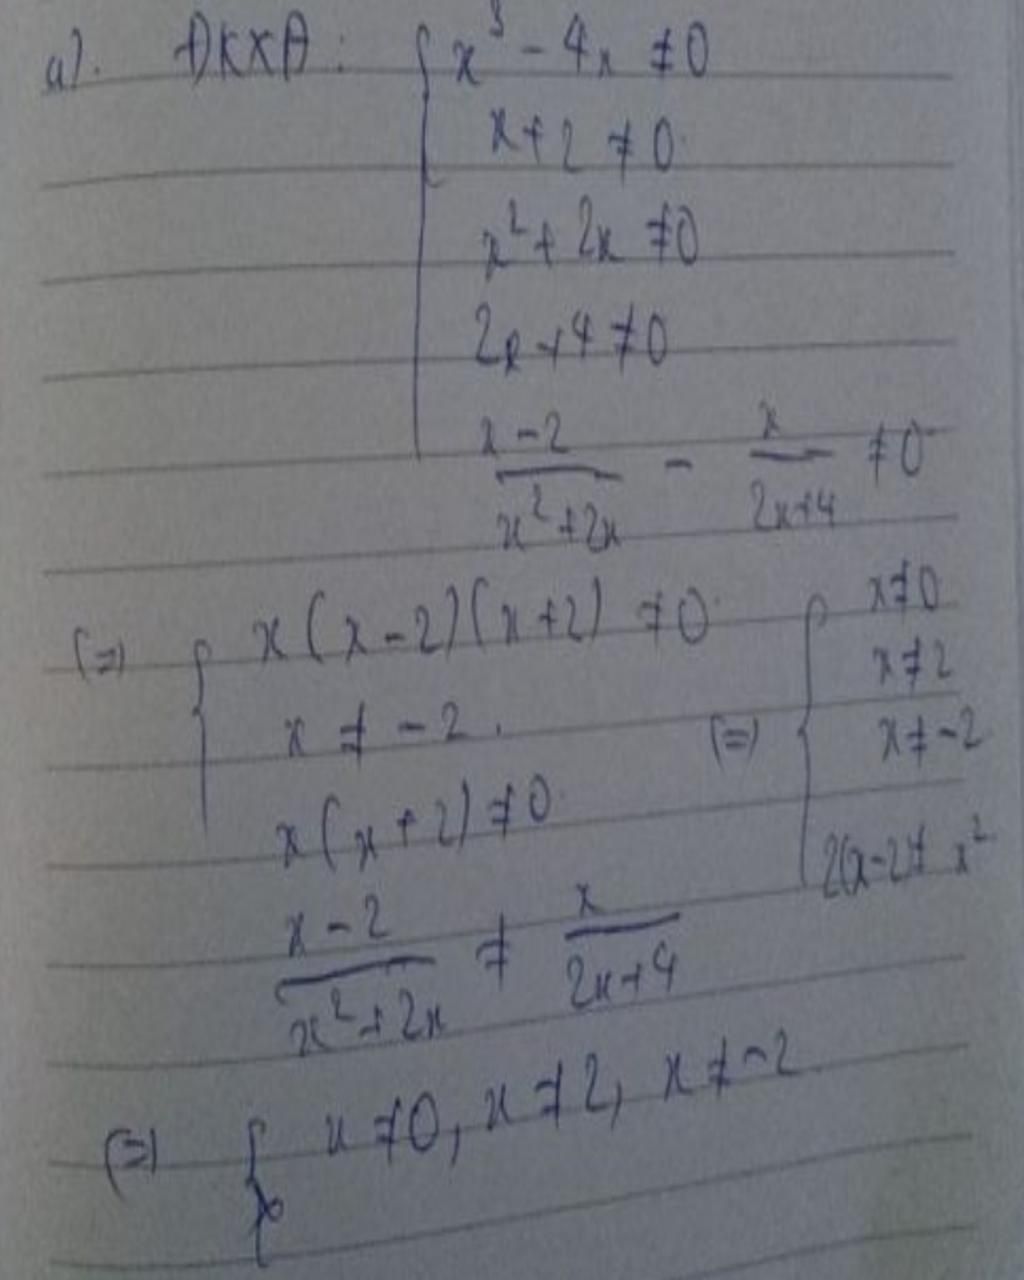 a). ĐKXĐ: { x³ - 4x ≠ 0
x + 2 ≠ 0
x² + 2x ≠ 0
2x + 4 ≠ 0
(x - 2)/(x² + 2x) - x/(2x + 4) ≠ 0
(=) { x(x - 2)(x + 2) ≠ 0
x ≠ -2.
x(x + 2) ≠ 0
(x - 2)/(x² + 2x) ≠ x/(2x + 4)
(=) { x ≠ 0
x ≠ 2
x ≠ -2
2(x - 2) ≠ x²
(=) { x ≠ 0, x ≠ 2, x ≠ -2